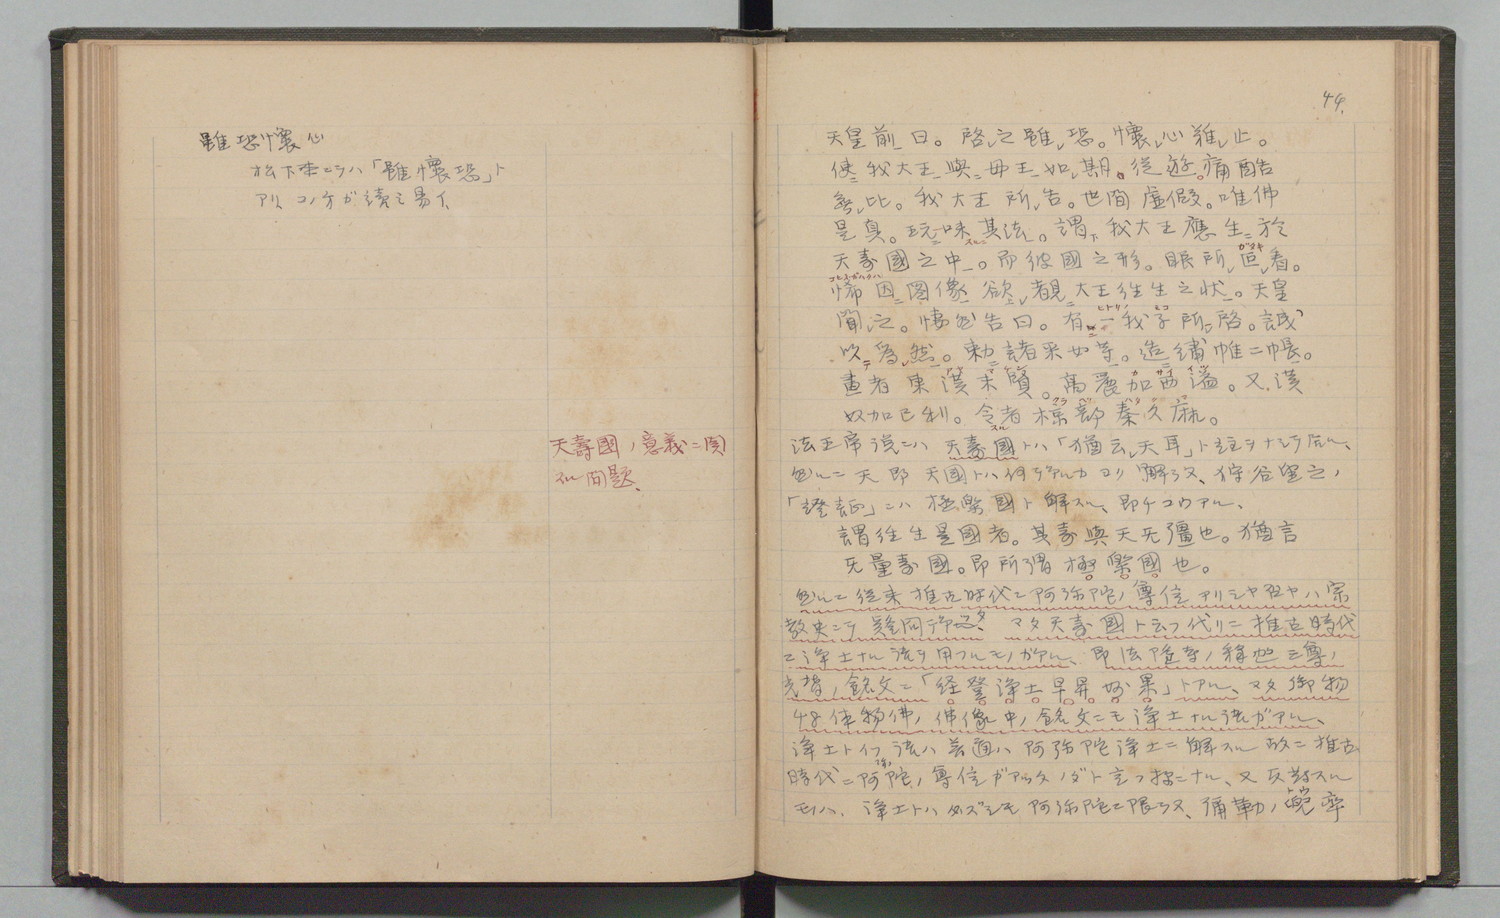 雖恐懐心
松下本ニテハ「雖懐恐」ト
アリ、コノ方ガ読ミ易イ
天壽國ノ意義ニ関
スル問題、
44.
天皇前曰。啓之雖恐。懐心難止。
使我大王與母王如期。従遊。痛酷
無比。我大王所告。世間虚假。唯佛
是真。玩味其法。謂我大王應生於
天壽國之中。而彼國之形。眼所叵看。
悕因圖像欲観大王往生之状。天皇
聞之。悽然告曰。有一我子所啓。誠
以為然。勅諸采女等。造繍帷二帳。
畫者東漢末賢。高麗加西溢。又漢
奴加己利。令者椋部秦久麻。
法王帝説ニハ天壽國トハ「猶云天耳」ト註ヲナシテ居ル、
然ルニ天即天國トハ何ヲ アルカヨリ解ラヌ、狩谷望之ノ
「證註」ニハ極楽國ト解スル、即チコウアル、
謂往生是國者。其壽與天无彊也。猶言
无量壽國。即所謂極樂國也。
然ルニ従来推古時代ニ阿弥陀ノ尊信アリシヤ否ヤハ宗
教史ニテ疑問 、マタ天壽國ト云フ代リニ推古時代
ニ浄土ナル語ヲ用フルモノガアル、即法隆寺ノ釋迦三尊ノ
光背ノ銘文ニ「経登浄土早昇妙果」トアル、マタ御物
48体物佛ノ佛像中ノ銘文ニモ浄土ナル語ガアル、
浄土トイフ語ハ普通ハ阿弥陀浄土ニ解スル故ニ推古
時代ニ阿陀ノ尊信ガアッタノダト言フ様ニナル、又反對スル
モノハ、浄土トハ必ズシモ阿弥陀ニ限ラヌ、彌勒ノ兜率